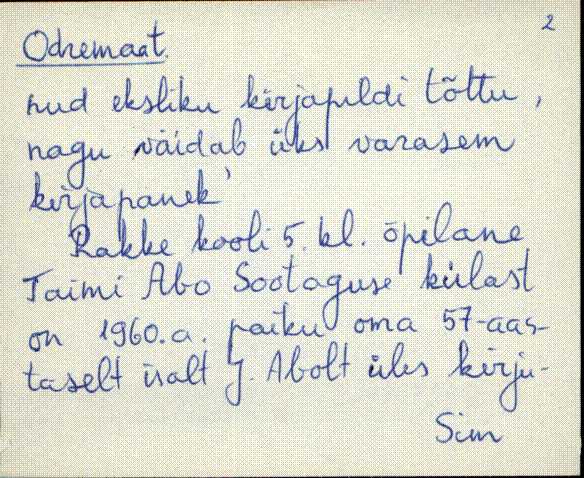 2
Odremaat.
nud eksliku kirjapildi tõttu,
nagu väidab üks varasem
kirjapanek'
Rakke kooli 5. kl. õpilane
Taimi Abo Sootaguse külast
on 1960. a. paiku oma 57-aas-
taselt isalt J. Abolt üles kirju-
Sim